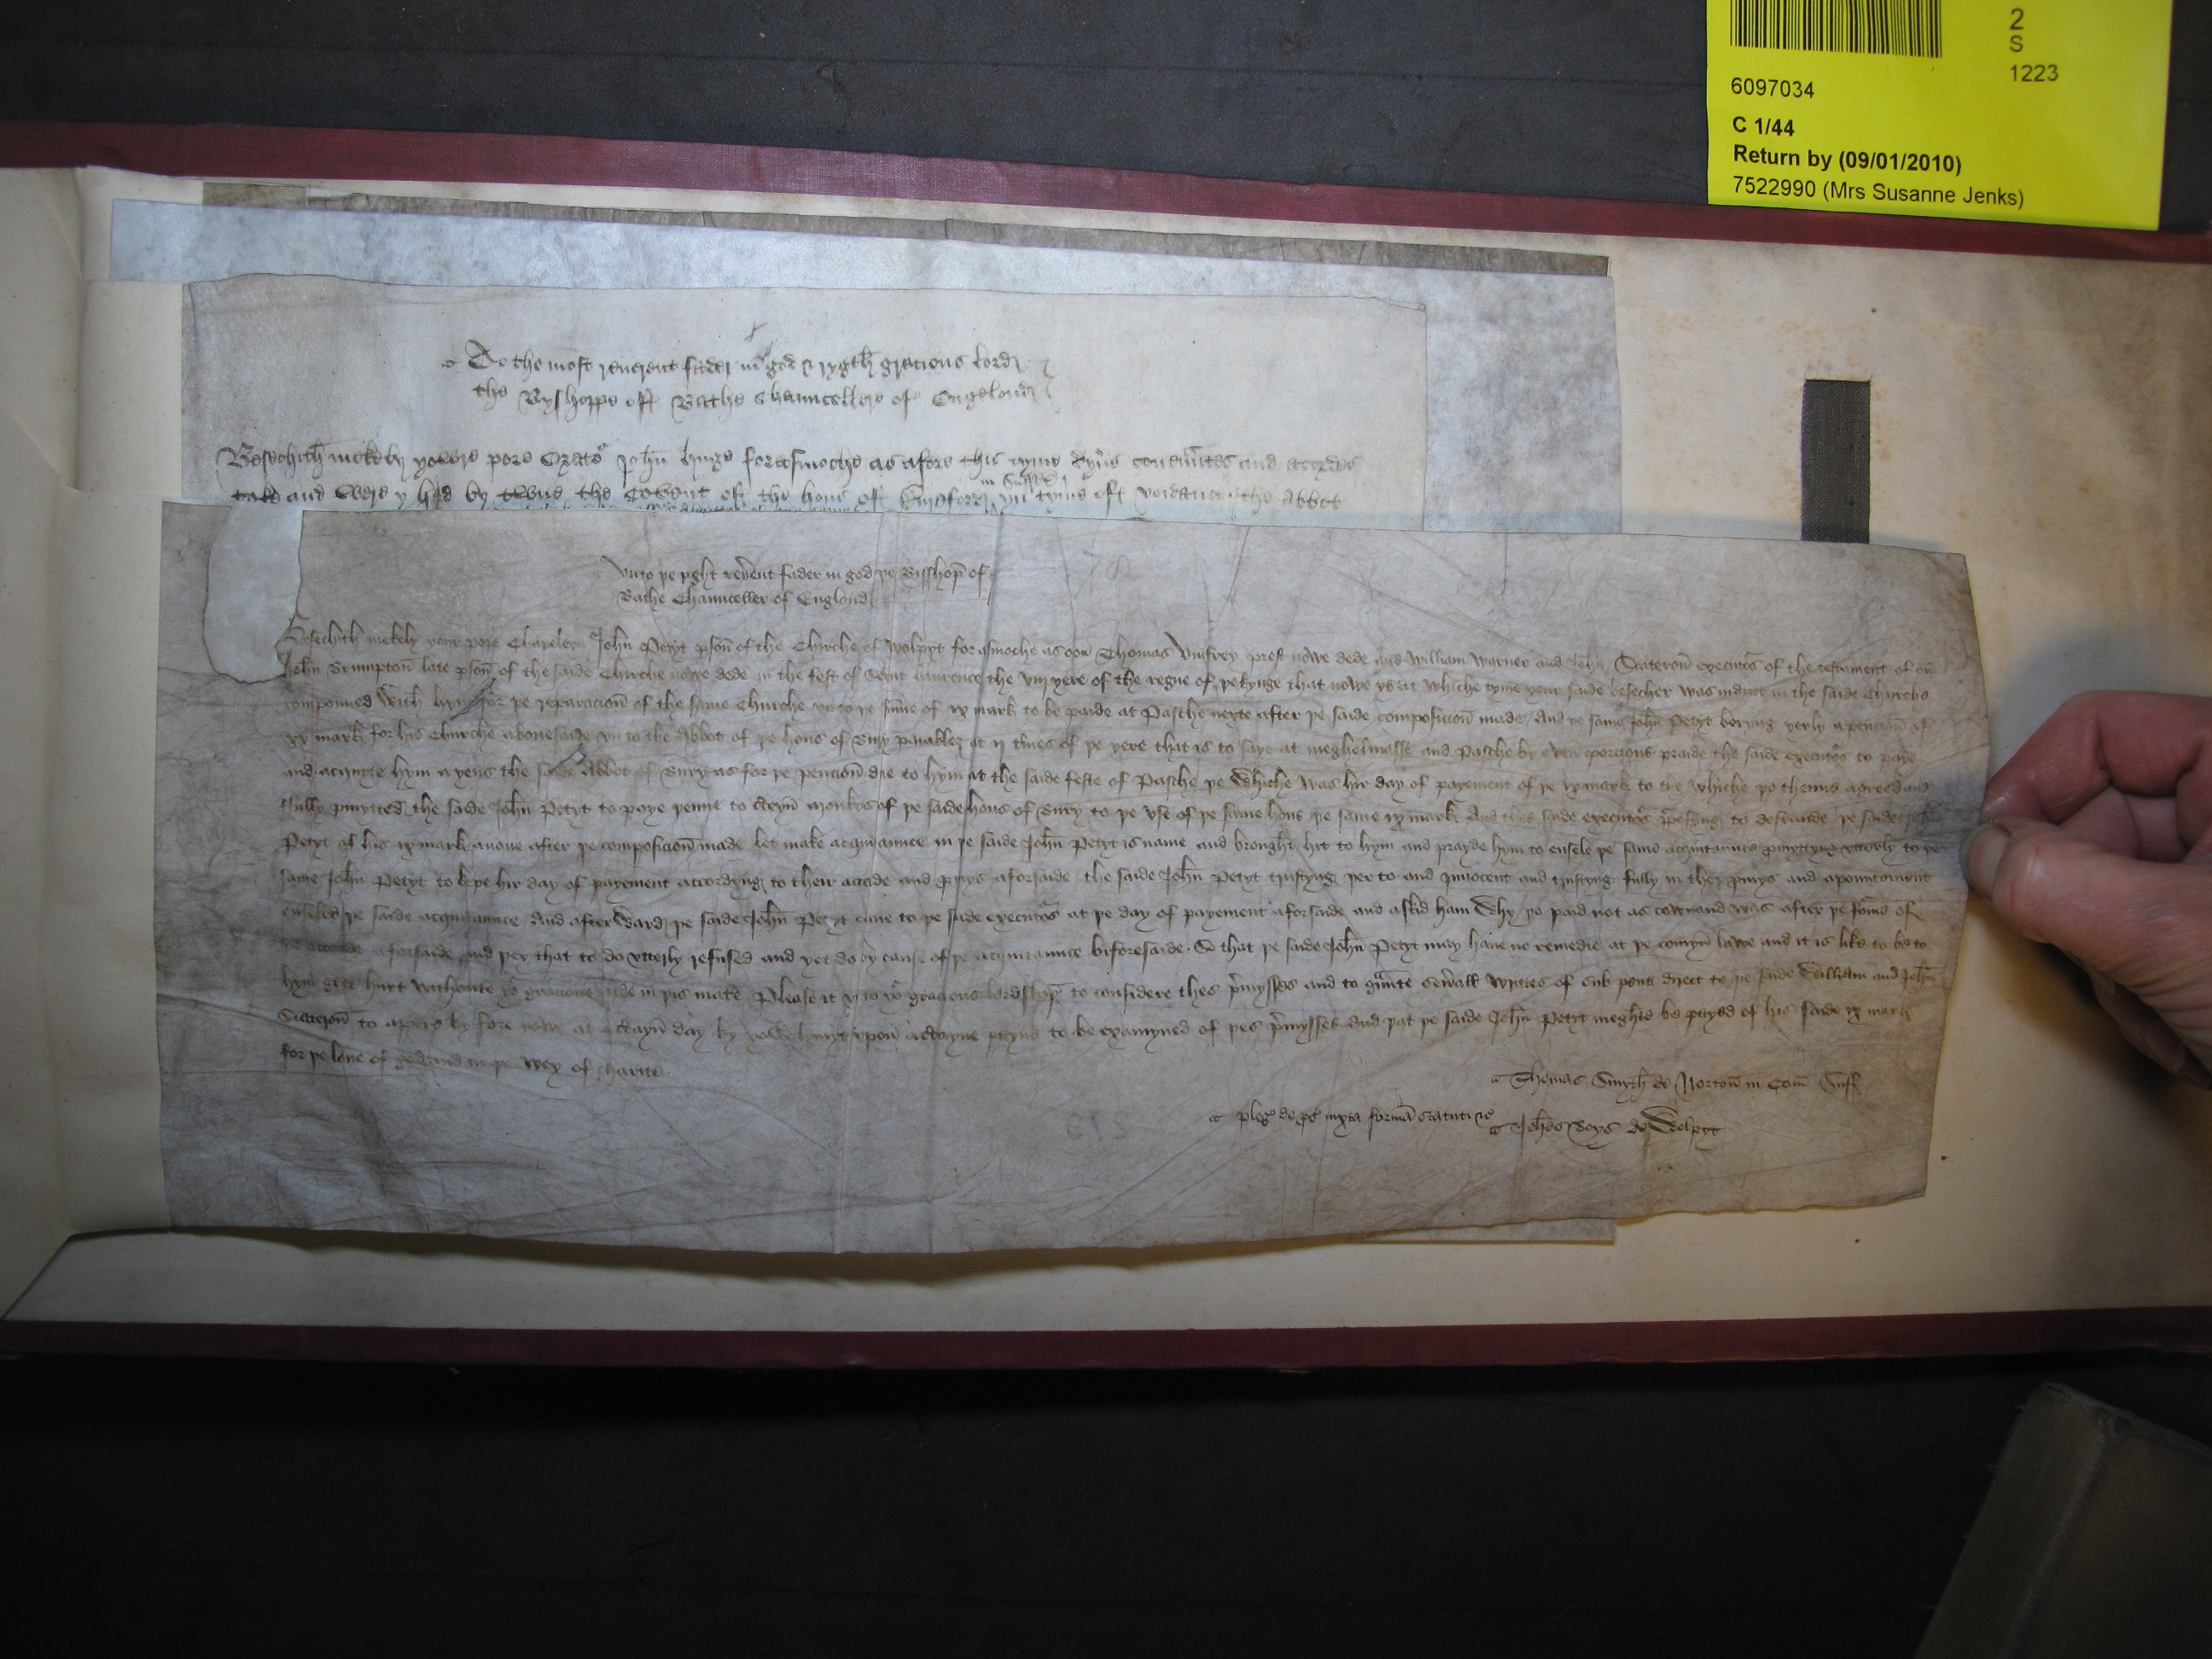 2
S
1223
6097034
C 1/44
Return by (09/01/2010)
7522990 (Mrs Susanne Jenks)
To the most reuerent fader in god & rygth gracious lord
the Bysshoppe off Bathe Chauncellere of Engelond
Besechith mekely yowre pore Orator John kynge for as moche as afore this tyme
in Suffolk
take and were y had by twene the Covent off the hous off in tyme off voidance the Abbot
Vnto þe ryght reuerent fader in god þe Bisshop of
Bathe Chaunceller of England
Besechith mekely your pore Chapeleyn John Petyt pson of the Chirche of Wolpyt for asmoche as oon Thomas Vmfrey prest nowe dede and William Warner and John executors of the testament of on
John Brumpton late pson of the saide Chirche nowe dede in the fest of Seynt laurence the viij yere of the regne of þe kynge that nowe ys at whiche tyme your saide besecher was induct in the saide Chirche
componed with hym for þe reparacion of the same Chirche vn to þe summe of ix mark to be paide at Pasche nexte after þe saide composicion made And þe same John Petyt beryng yerly a pencion of
xx mark for his Chirche abouesaide vn to the Abbot of þe hous of Bury paiable at ij tymes of þe yere that is to saye at meghelmasse and Pasche by even porcions praide the saide executors to paye
and acquyte hym a yens the saide Abbot of Bury as for þe pencion due to hym at the saide feste of Pasche þe whiche was hir day of payement of þe ix mark to the whiche þo themis agreed and
fully pmytted the saide John Petyt to paye to certeyn monkys of þe saide hous of Bury to þe vse of þe same hous þe same ix mark And thes saide executors to defraude þe saide John
Petyt of his ix mark anone after þe composicion made let make acquitaunce in þe saide John Petyt is name and brought hit to hym and prayde hym to ensele þe same acquitaunce pmyttyng vtterly to þe
same John Petyt to kepe hir day of payement accordyng to their accorde and pmys aforsaide the saide John Petyt trustyng þer to and Innocent and trustyng fully in they pmys and apointement
enseled þe saide acquitaunce And afterward þe saide John Petyt came to þe saide executors at þe day of payement aforsaide and askid ham why þo paid not as covenand was after þe forme of
þe accorde aforsaide and þey that to do vtterly refused and yet do by cause of þe acquitaunce biforesaide So that þe saide John Petyt may haue no remedie at þe comyn lawe and it is like to be to
hym gret hurt withoute yor gracious aide in þis mater Please it vn to yor gracious lordshyp to considere thes premysses and to graunte seuerall writtes of sub pena direct to þe saide William and John
to apere by fore yowe at a certayn day by yowe lymyt vpon a certayne peyne to be examyned of þes premysses And þat þe saide John Petyt meghte be payed of his saide ix mark
for þe loue of god and in þe wey of charite
Thomas Smyth de Norton in Com Suff
pleg de ps iuxta formam statuti &c
Johes Boys de Wolpyt